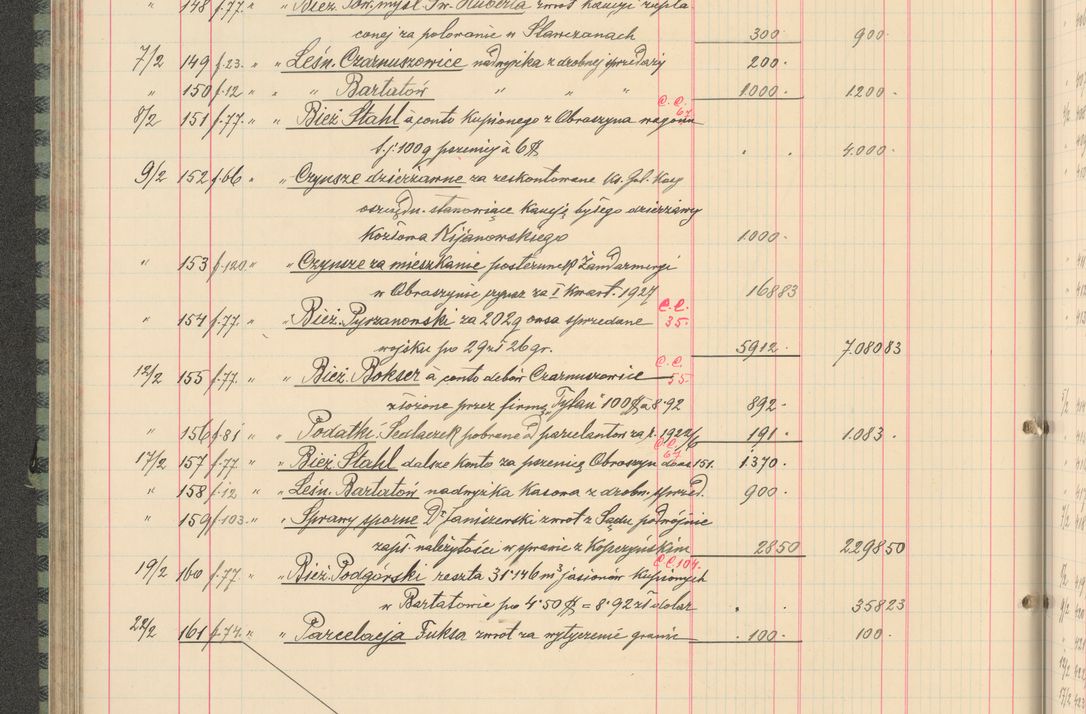 " 148 f.77. " " Bież. Tow. myśl. Św. Huberta zwrot kaucyi zapła
conej za polowanie w Stawczanach 300 900 -
7/2 149 f.23. " " Leśn. Czarnuszowice nadwyżka z drobnej sprzedaży 200 -
" 150 f.12 " " " Bartatów " " " 1000 - 1200 -
C.C. 67
8/2 151 f.77. " " Bież. Stahl à conto kupionego z Obroszyna wagonu
t.j. 100 q pszenicy à 6 $ . . 4.000 -
9/2 152 f.66 " " Czynsze dzierżawne za zeskontowane Ks. Gal. Kasy
oszczędn. stanowiące kaucję byłego dzierżawcy
Kozłowa Nijanowskiego 1.000 -
" 153 f.120. " " Czynsze za mieszkanie posterunek Żandarmeryi
w Obroszynie czynsz za I kwart. 1927 16883
C.C. 35.
" 154 f.77. " " Bież. Pyrzanowski za 202 q owsa sprzedane
wojsku po 29 zł 26 gr. 5912 - 7.08083
C.C. 55
12/2 155 f.77. " " Bież. Bokser à conto debów Czarnuszowice
złożone przez firmę "Tytan" 100 $ à 8.92 892 -
" 156 f.81 " Podatki. Sedlaczek pobrane od parcelantów za r. 1922/6 191 - 1.083 -
C.C. 67
17/2 157 f.77. " " Bież. Stahl dalsze konto za pszenicę Obroszyn 151. 1.370 -
" 158 f.12. " " Leśn. Bartatów nadwyżka kasowa z drobn. sprzed. 900 -
" 159 f.103. " " Sprawy sporne Dr Janiszewski zwrot z Sądu podwójnie
zapł. należytości w sprawie z Kopczyńskim 2850 229850
C.C. 104.
19/2 160 f.77. " " Bież. Podgórski reszta 31.146 m³ jasionów kupionych
w Bartatowie po 4.50 $ = 8.92 zł dolar . . 35823
22/2 161 f.74. " " Parcelacja Fuksa zwrot za wytyczenie granic 100 - 100 -